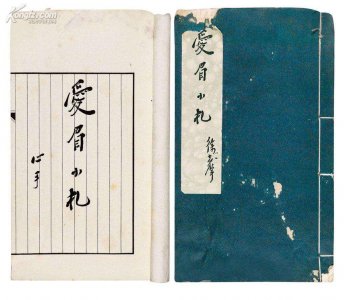 Kongfz.com
愛眉小札
心手
愛眉小札
徐志摩